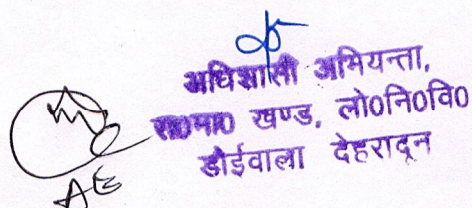 अधिशासी अभियन्ता,
रा०मा० खण्ड, लो०नि०वि०
डोईवाला देहरादून
AE